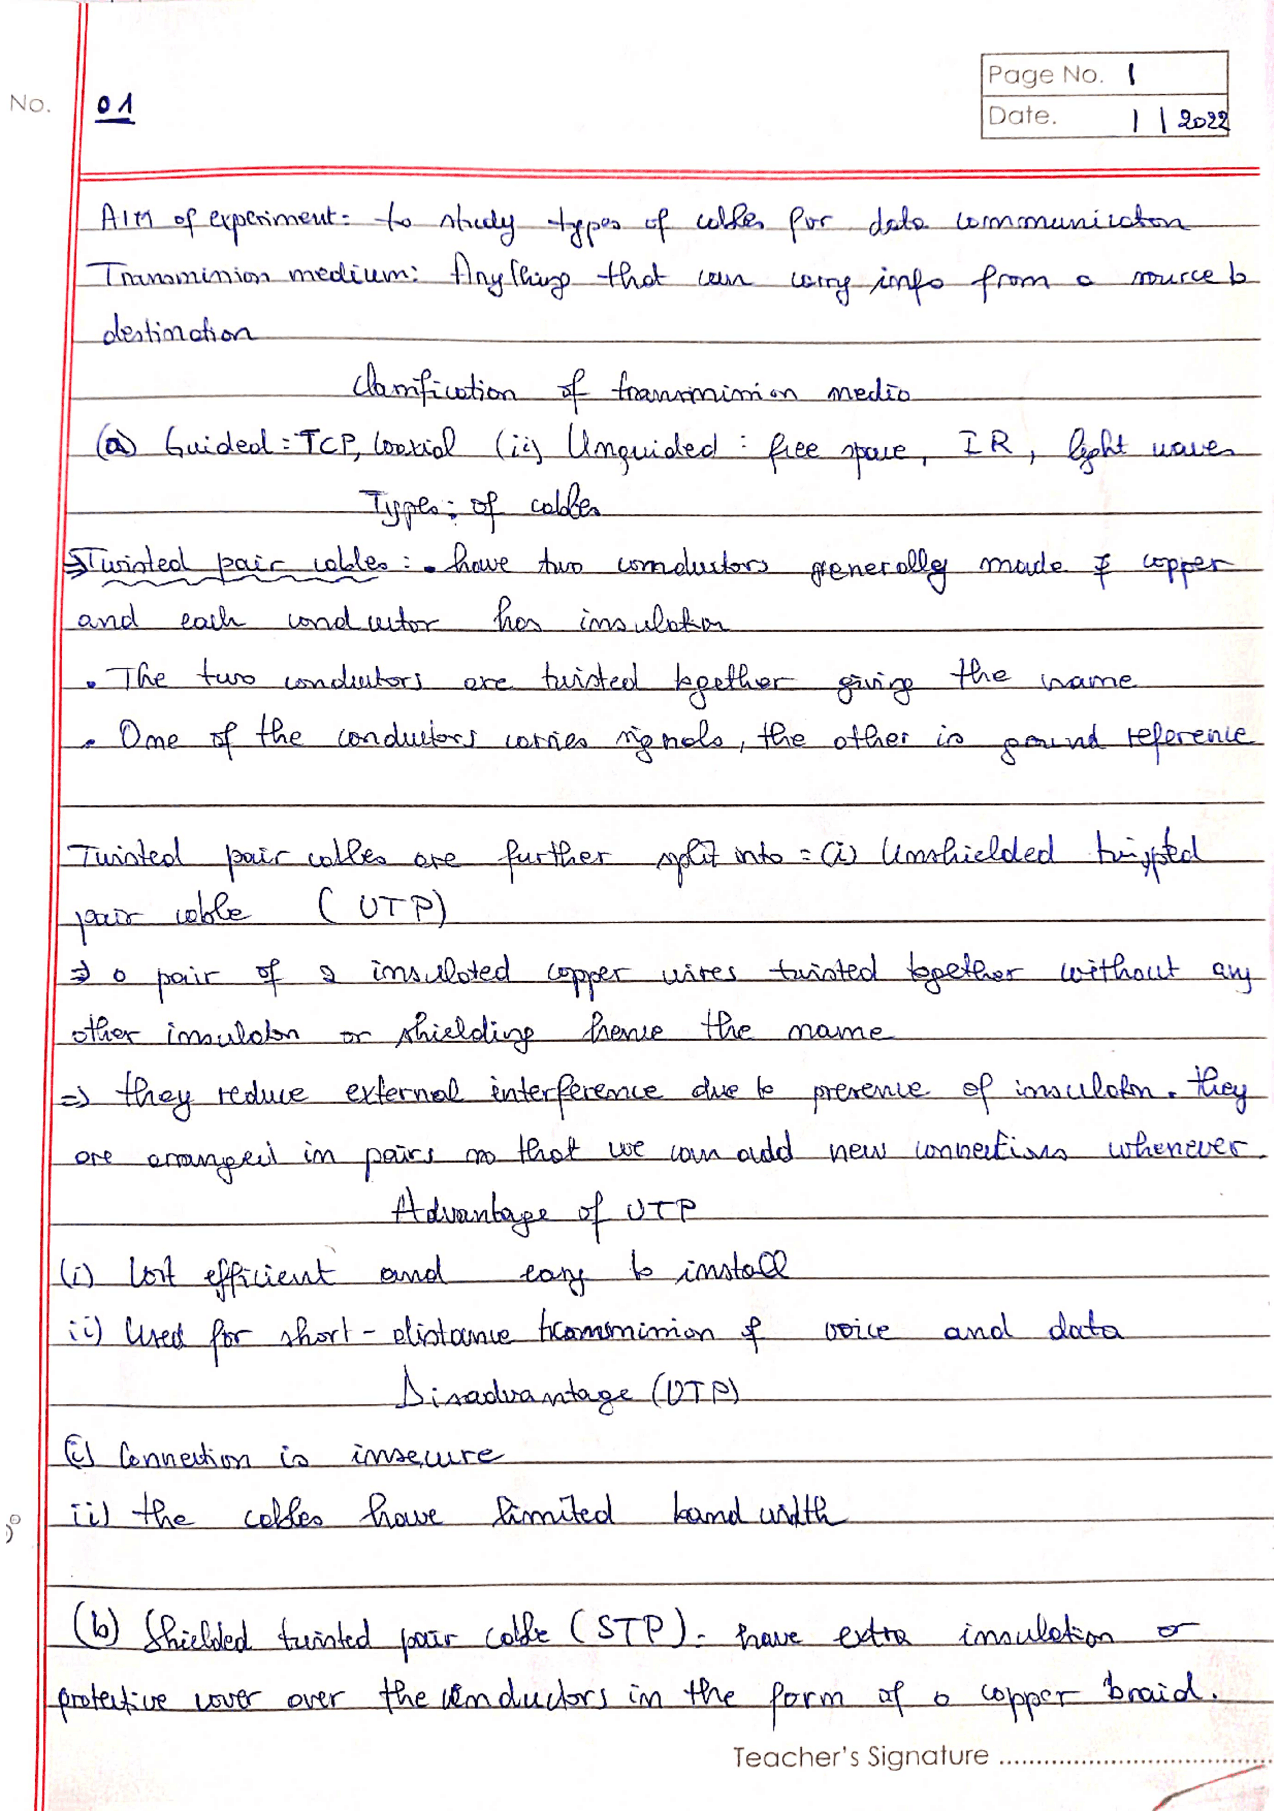 Page No. 1
No. 01
Date. 1 | 2022
AIM of experiment: to study types of cables for data communication
Transmission medium: Anything that can carry info from a source to
destination
Classification of transmission media
(a) Guided: TCP, Coaxial (ii) Unguided: free space, IR, light waves
Types: of cables
⇒Twisted pair cables: • have two conductors generally made of copper
and each conductor has insulation
• The two conductors are twisted together giving the name
• One of the conductors carries signals, the other is ground reference
Twisted pair cables are further split into = (i) Unshielded twisted
pair cable (UTP)
⇒ a pair of 2 insulated copper wires twisted together without any
other insulation or shielding hence the name
⇒ they reduce external interference due to presence of insulation. they
are arranged in pairs so that we can add new connections whenever.
Advantage of UTP
(i) Cost efficient and easy to install
ii) Used for short-distance transmission of voice and data
Disadvantage (UTP)
(i) Connection is insecure
ii) the cables have limited band width
(b) Shielded twisted pair cable (STP). have extra insulation or
protective cover over the conductors in the form of a copper braid.
Teacher's Signature ....................................